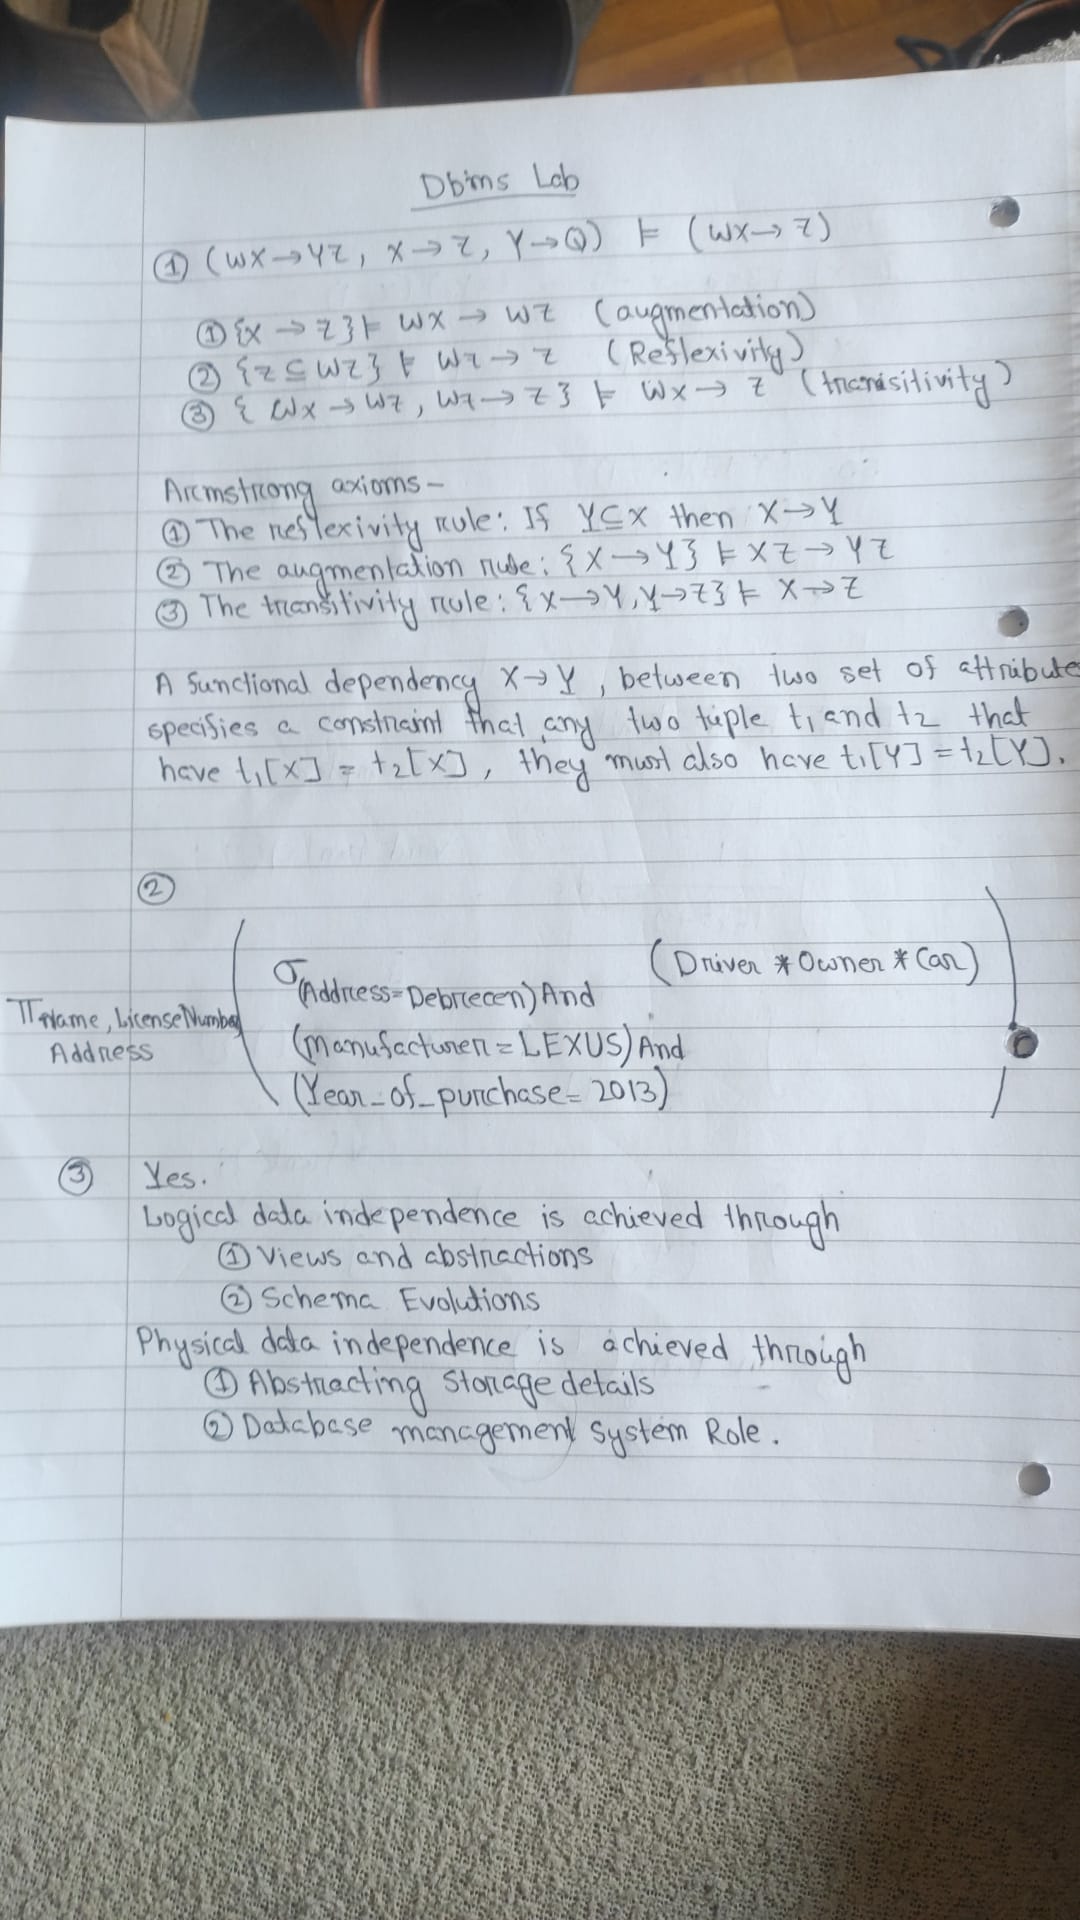 Dbms Lab
① (WX→YZ, X→Z, Y→Q) ⊨ (WX→Z)
① {X → Z} ⊨ WX → WZ (augmentation)
② {Z ⊆ WZ} ⊨ WZ → Z (Reflexivity)
③ { WX → WZ, WZ → Z } ⊨ WX → Z (transitivity)
Armstrong axioms -
① The reflexivity rule: If Y⊆X then X→Y
② The augmentation rule: {X → Y} ⊨ XZ → YZ
③ The transitivity rule: {X→Y, Y→Z} ⊨ X→Z
A functional dependency X→Y, between two set of attribute
specifies a constraint that any two tuple t₁ and t₂ that
have t₁[X] = t₂[X], they must also have t₁[Y] = t₂[Y].
②
σ (Driver * Owner * Car)
(Address=Debrecen) And
Π Name, License Number
(manufacturer = LEXUS) And
Address
(Year_of_purchase= 2013)
③ Yes.
Logical data independence is achieved through
① Views and abstractions
② Schema Evolutions
Physical data independence is achieved through
① Abstracting Storage details
② Database management System Role.